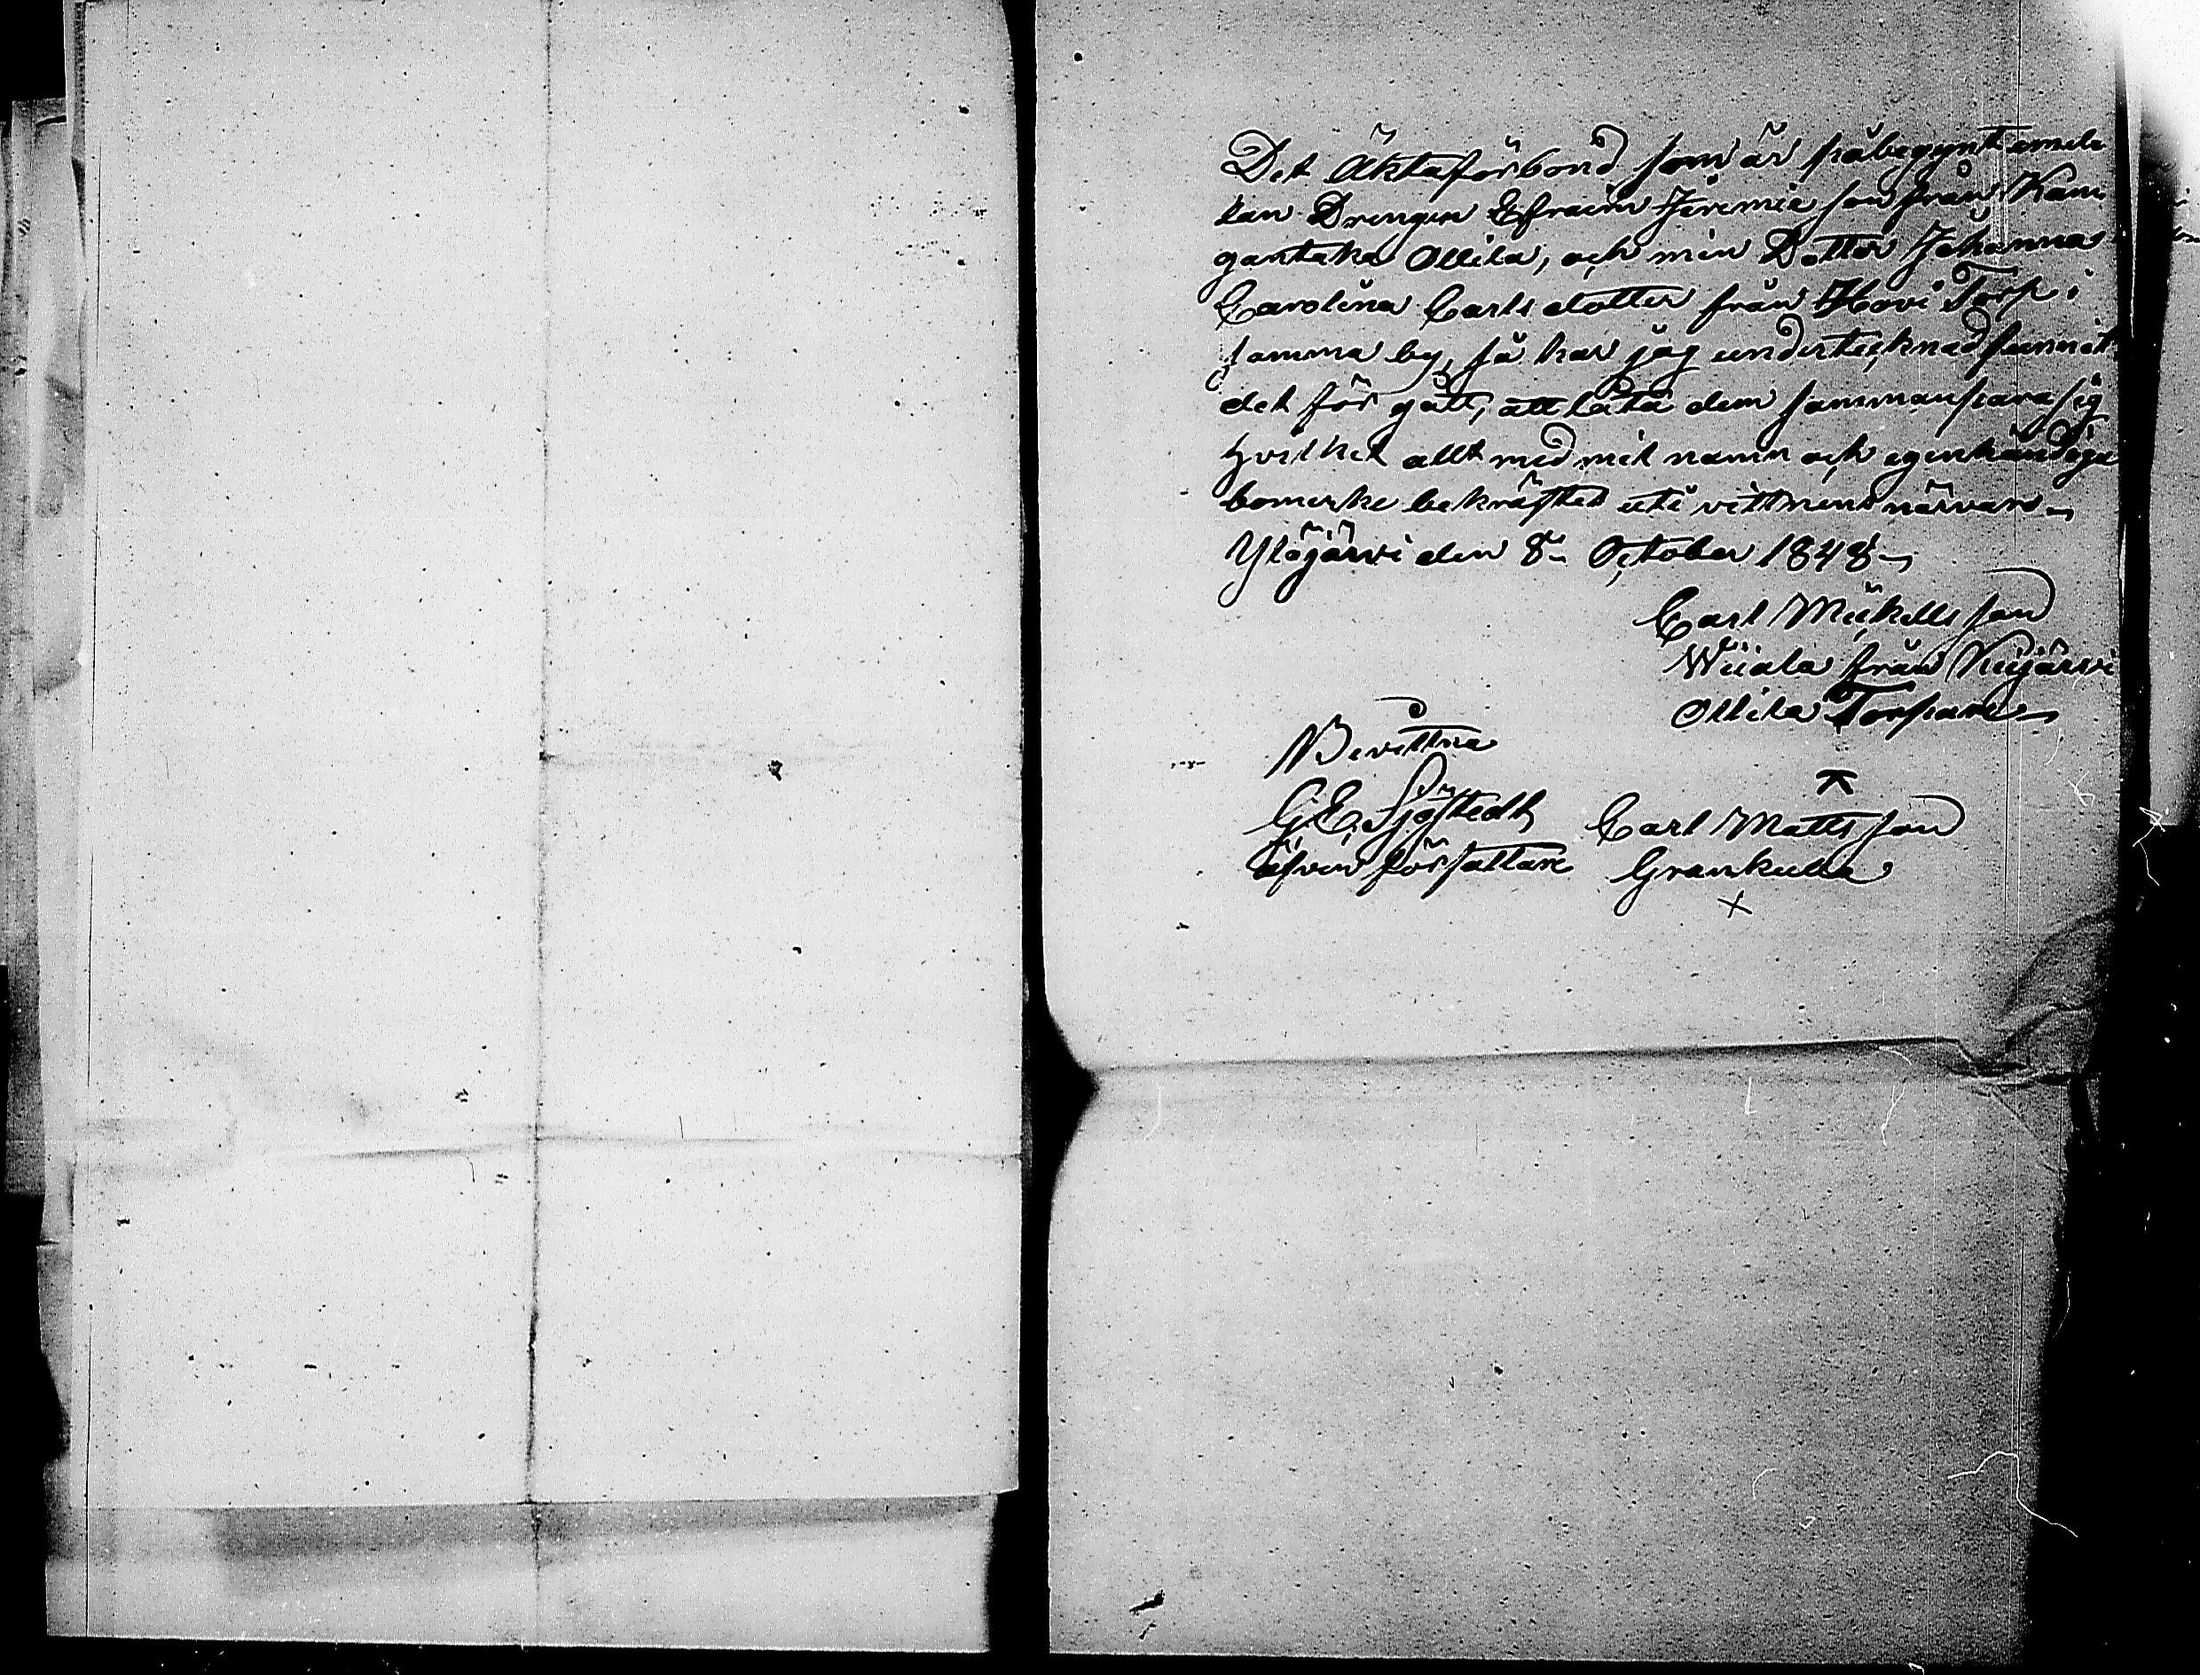 Det Äktaförbond som är påbegynt emel
lan Drengen Efraim Jeremie son från Kan
gantaka Ollila, och min Dotter Johanna
Carolina Carls dotter från Hovi Torp i
samma by, så har jag undertecknad funnit
det för gått, att låta dem sammanpara sig
hvilket allt med mit namn och egenhändiga
bomerke bekräftas uti vittnens närvaro
Ylöjärvi den 8 October 1848
Carl Mickells son
Wiiala från Kiijärvi
Ollila Torpare
Bevittna
G. E. Sjöstedt Carl Matts son
äfven författare Grankulla
x